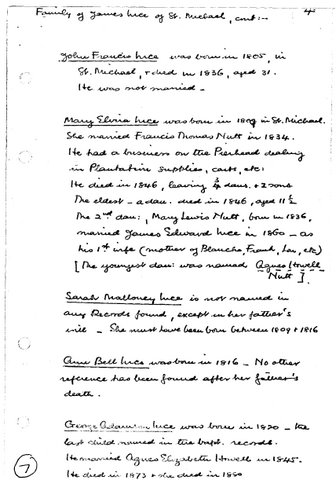 Family of James Ince of St. Michael, cont:-
4
John Francis Ince was born in 1805, in
St. Michael, + died in 1836, aged 31.
He was not married -
Mary Elvira Ince was born in 1807 in St. Michael.
She married Francis Thomas Nutt in 1834.
He had a business on the Pierhead dealing
in Plantation supplies, carts, etc:
He died in 1846, leaving 3/4 daus. + 2 sons
The eldest - a dau: died in 1846, aged 11½
The 2nd dau:, Mary Lewis Nutt, born in 1836,
married James Edward Ince in 1860 - as
his 1st wife (mother of Blanche, Frank, Ian, etc)
[The youngest dau: was named Agnes Howell
Nutt].
Sarah Malloney Ince is not named in
any Records found, except in her father's
will - She must have been born between 1809 + 1816
Ann Bell Ince was born in 1816 - No other
reference has been found after her father's
death.
George Adamson Ince was born in 1820 - the
last child named in the bapt. records.
He married Agnes Elizabeth Howell in 1845.
He died in 1873 + she died in 1880
7